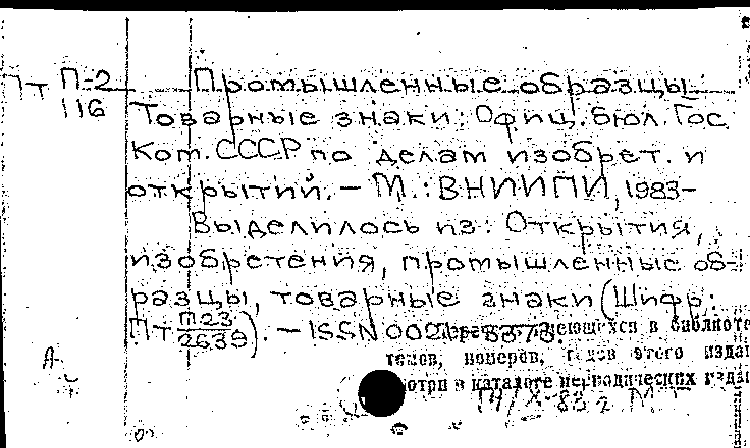 Пт П-2 Промышленные образцы.
116 Товарные знаки: Офиц. бюл. Гос.
Ком. СССР по делам изобрет. и
открытий. – М.: ВНИИПИ, 1983–
Выделилось из: Открытия,
изобретения, промышленные об-
разцы, товарные знаки (Шифр:
Пт П23/2639). – ISSN
имеющихся в библиоте
томов, номеров, годов этого изда
смотри в каталоге периодических